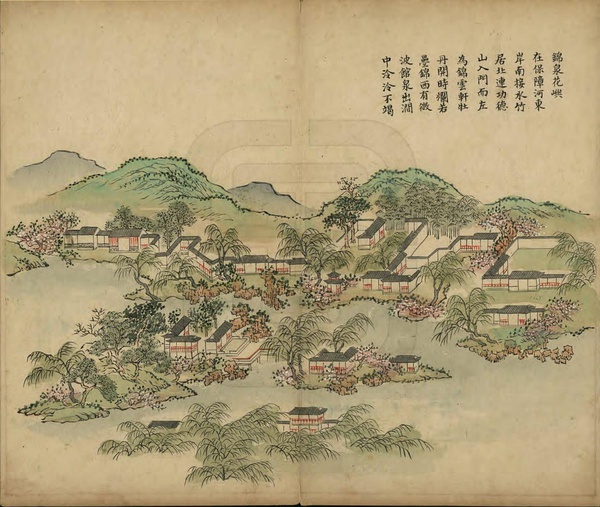 錦泉花嶼
在保障河東
岸南接水竹
居北連功德
山入門而左
為錦雲軒牡
丹開時爛若
疊錦西有微
波館泉出澗
中泠泠不竭